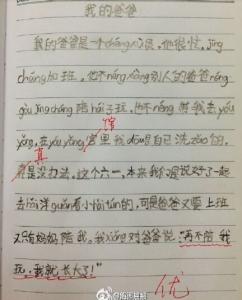 我的爸爸
我的爸爸是一个chǎng 汉民,他很忙,jīng
cháng加班,他不néng xiàng别人的爸爸néng
gòu jīng cháng陪hái子玩,他不néng 带我去yóu
yǒng,去yóu yǒng 馆里我dōu是自己洗zǎo的,
真是没办法。这个六一,本来我们说好了一起
去hǎi洋guǎn看小hǎi tún的,可是爸爸又要上班
又只有妈妈陪我。我xiǎng对爸爸说:“再不陪我
玩,我就长大了!”
优